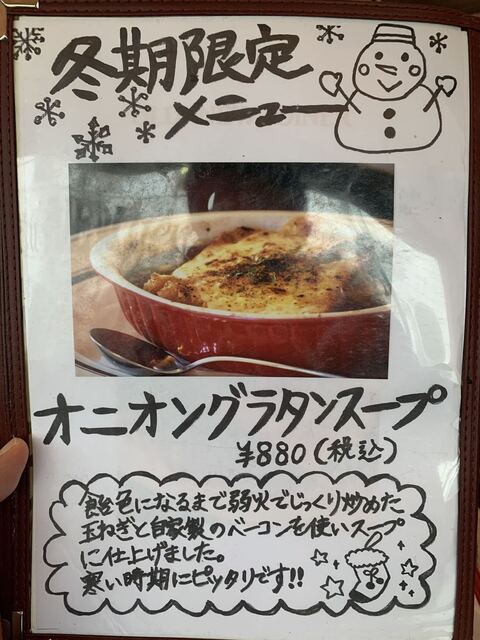 冬期限定
メニュー
オニオングラタンスープ
¥880(税込)
飴色になるまで弱火でじっくり炒めた
玉ねぎと自家製のベーコンを使いスープ
に仕上げました。
寒い時期にピッタリです!!